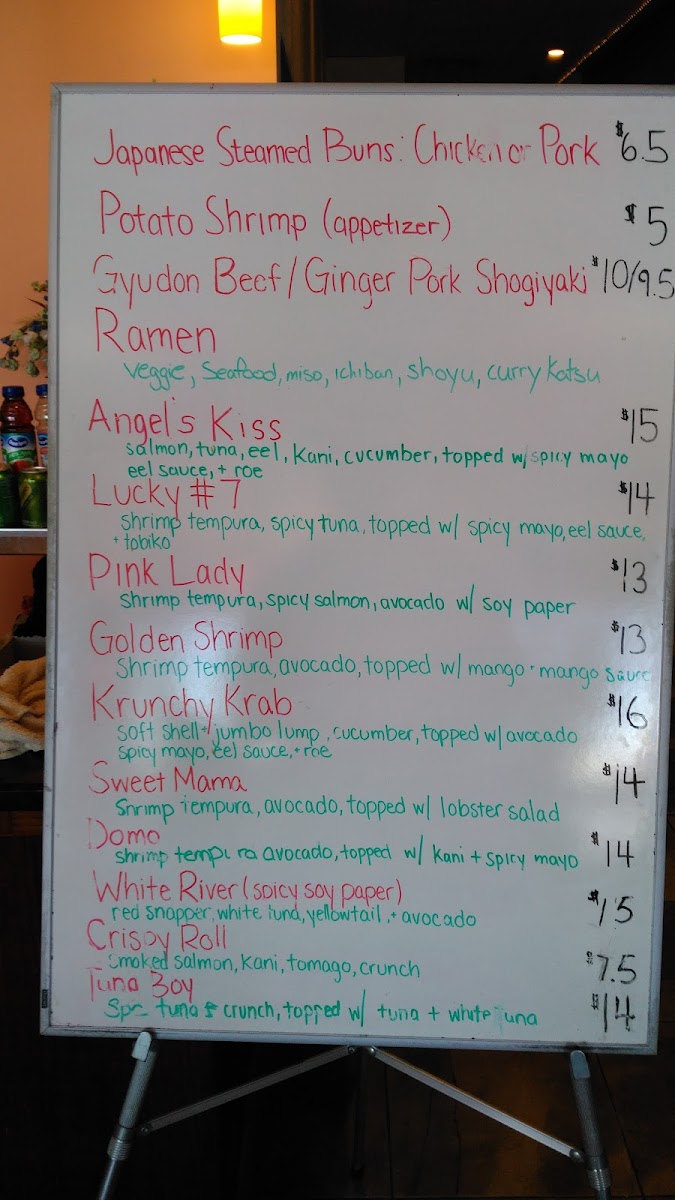 Japanese Steamed Buns: Chicken or Pork $6.5
Potato Shrimp (appetizer) $5
Gyudon Beef/Ginger Pork Shogiyaki $10/9.5
Ramen
veggie, Seafood, miso, ichiban, shoyu, curry Katsu
Angel's Kiss $15
salmon, tuna, eel, Kani, cucumber, topped w/ spicy mayo
eel sauce, + roe
Lucky #7 $14
shrimp tempura, spicy tuna, topped w/ spicy mayo, eel sauce,
+ tobiko
Pink Lady $13
shrimp tempura, spicy salmon, avocado w/ soy paper
Golden Shrimp $13
Shrimp tempura, avocado, topped w/ mango + mango sauce
Krunchy Krab $16
soft shell + jumbo lump, cucumber, topped w/ avocado
spicy mayo, eel sauce, + roe
Sweet Mama $14
Shrimp tempura, avocado, topped w/ lobster salad
Domo $14
shrimp tempura avocado, topped w/ Kani + spicy mayo
White River (spicy soy paper) $15
red snapper, white tuna, yellowtail, + avocado
Crispy Roll $7.5
Smoked salmon, Kani, tomago, crunch
Tuna Boy $14
tuna + crunch, topped w/ tuna + white tuna